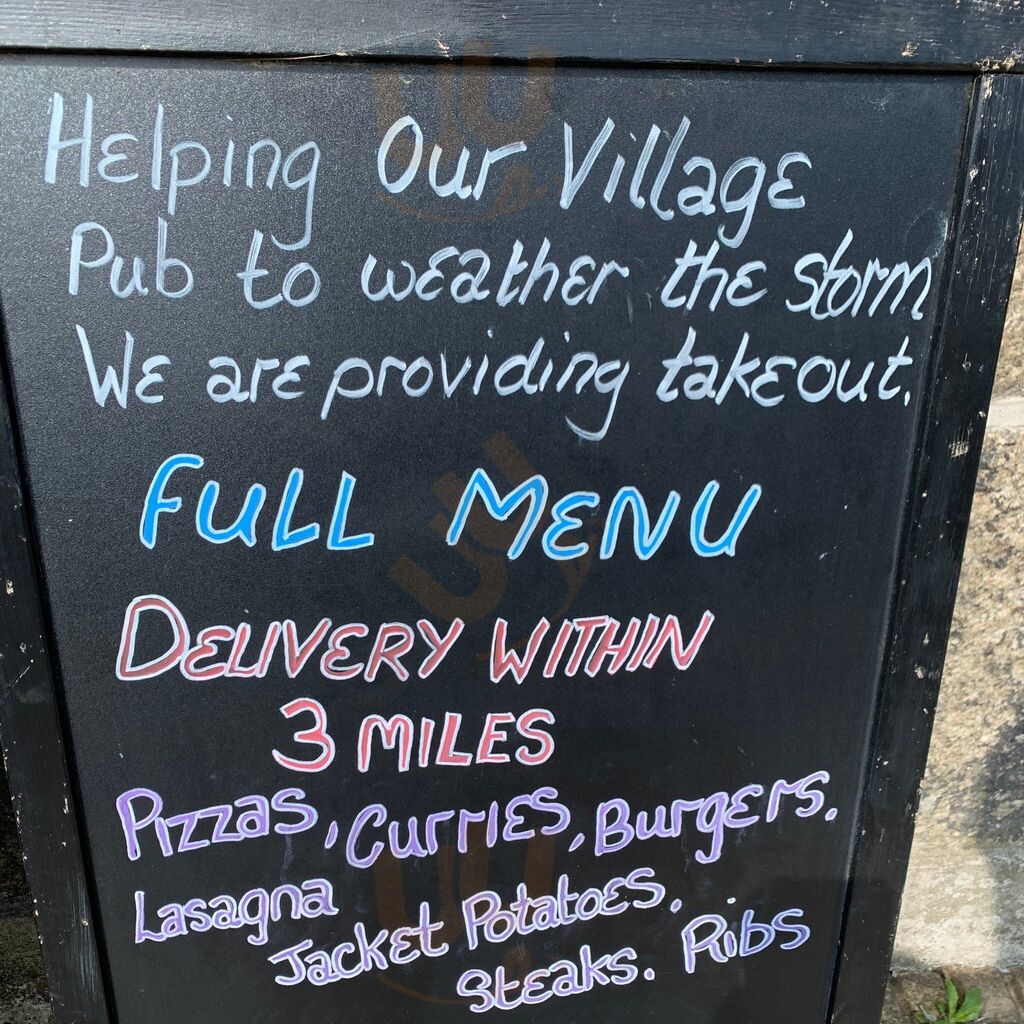 Helping Our Village
Pub to weather the storm
We are providing takeout.
FULL MENU
DELIVERY WITHIN
3 MILES
Pizzas, Curries, Burgers.
Lasagna
Jacket Potatoes.
Steaks. Ribs